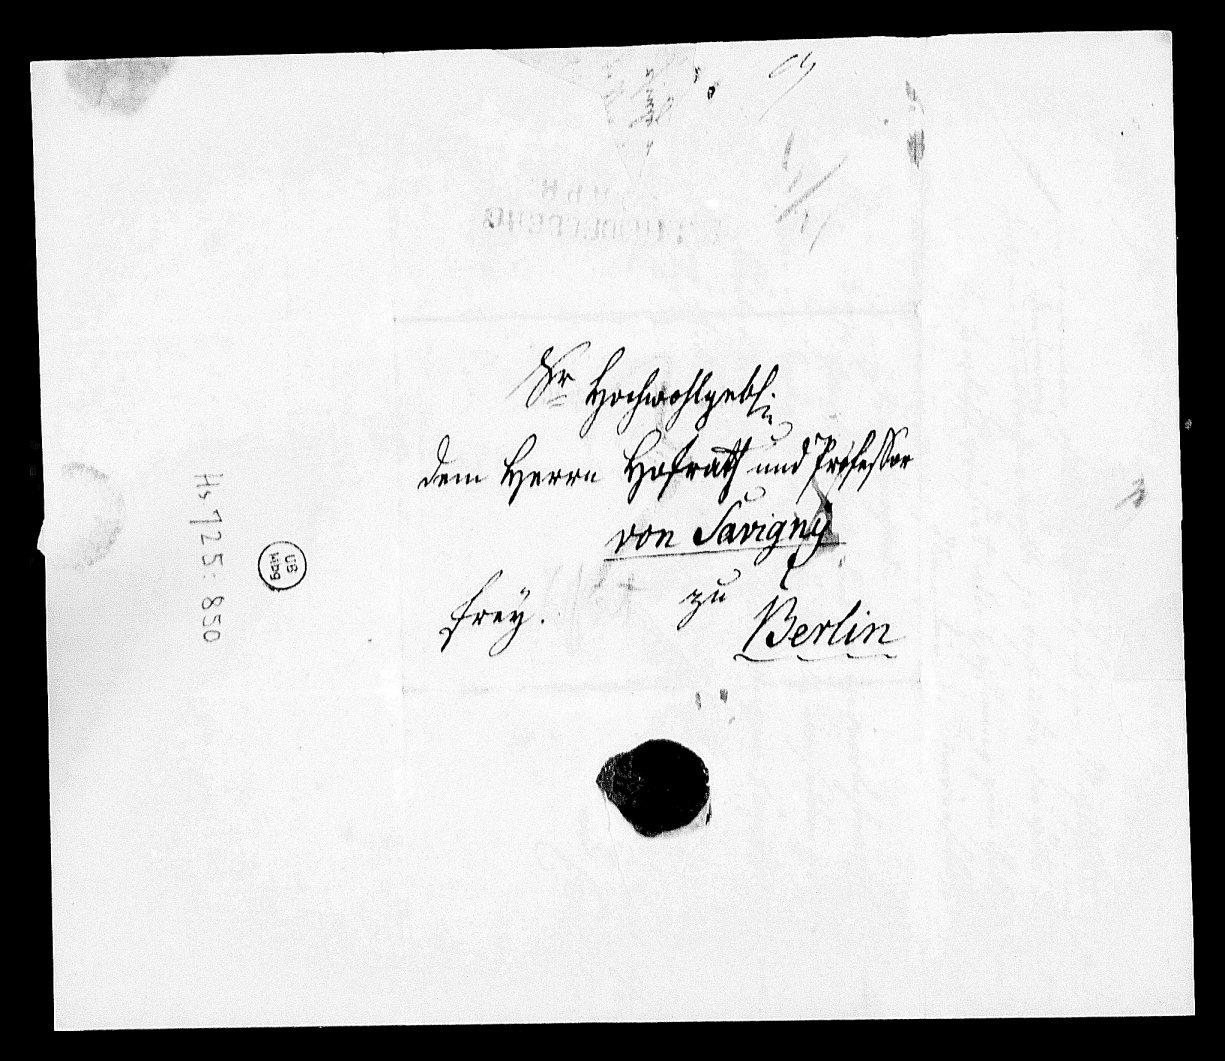 Sr Hochwohlgeb.
dem Herrn Hofrath und Professor
von Savigny
zu
frey.
Berlin
Hs 725: 850
UB
Mbg